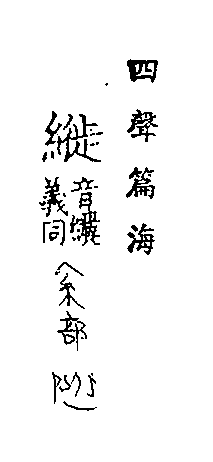 四聲篇海
縰
音纚
義同
糸部